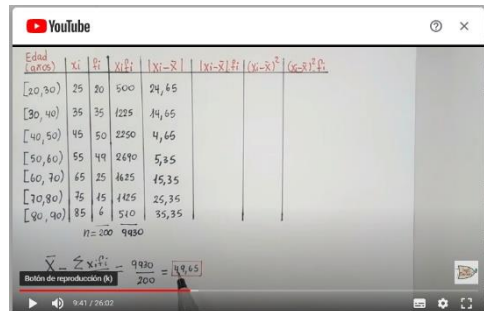 YouTube
Edad (años) | xi | fi | xifi | |xi-x̄| | |xi-x̄|fi | (xi-x̄)² | (xi-x̄)²fi
[20,30) 25 20 500 24,65
[30,40) 35 35 1225 14,65
[40,50) 45 50 2250 4,65
[50,60) 55 49 2690 5,35
[60,70) 65 25 1625 15,35
[70,80) 75 15 1125 25,35
[80,90) 85 6 510 35,35
n=200 9930
x̄ = Σxifi = 9930/200 = 49,65
Botón de reproducción (k)
9:41 / 26:02